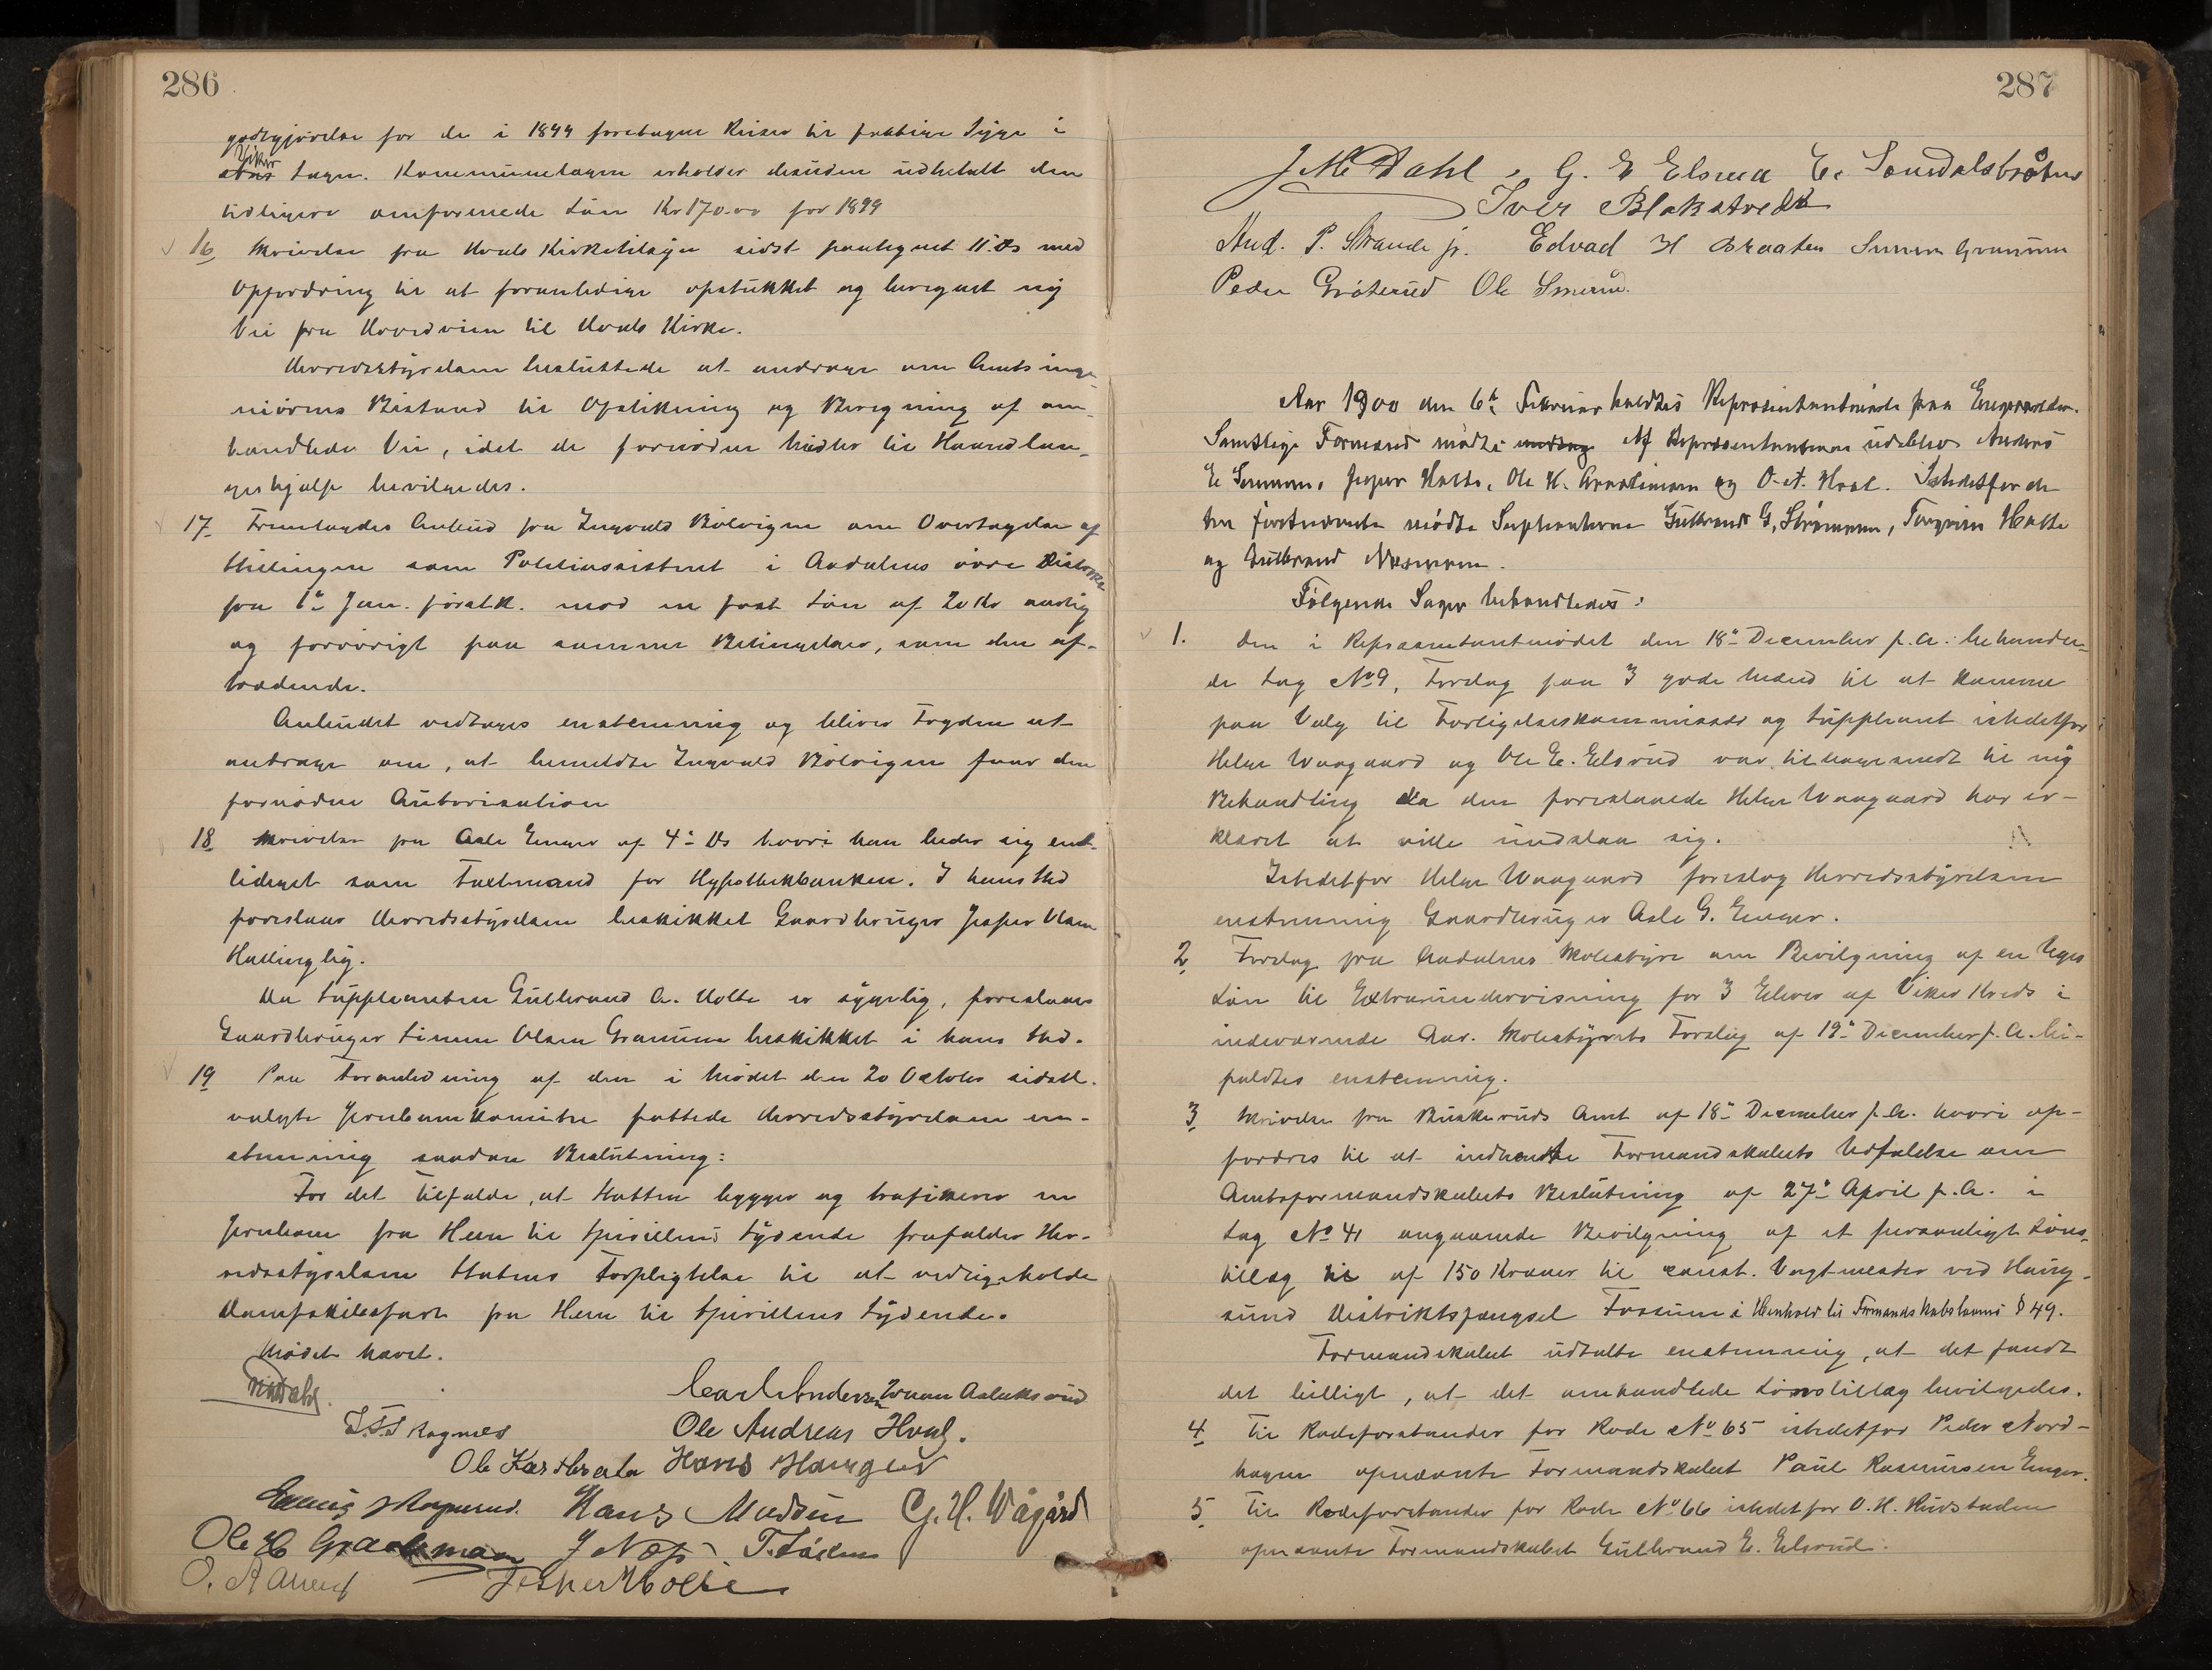 286
godtgjørelse for de i 1899 foretagne Reiser til fattige Syge i
Viker
Sogn. Kommunelægen erholder desuden udbetalt den
tidligere omforenede Løn Kr 170.00 for 1899
16 Skrivelse fra Hvals Kirketilsyn sidst paategnet 11. Ds med
Opfordring til at foranledige opstukket og beregnet ny
Vei fra Hovedveien til Hvals Kirke.
Herredsstyrelsen besluttede at andrage om Amtsinge-
niørens Bistand til Opstikning og Beregning af om-
handlede Vei, idet de fornødne Midler til Haandlan-
gerhjælp bevilgedes.
17 Fremlagdes Anbud fra Ingvald Bølvigen om Overtagelse af
Stillingen som Politiassistent i Aadalens øvre Distrikt
fra 1ste Jan. førstk. mod en fast Løn af 20 Kr aarlig
og forøvrigt paa samme Betingelser, som den af-
trædende.
Anbudet vedtages enstemmig og bliver Fogden at
andrage om, at bemeldte Ingvald Bølvigen faar den
fornødne Autorisation
18 Skrivelse fra Asle Enger af 4de Ds hvori han beder sig ent-
lediget som Taxtmand for Hypothekbanken. I hans Sted
foreslaar Herredsstyrelsen beskikket Gaardbruger Jesper Olsen
Hallinglig.
Da Suppleanten Gulbrand A. Holte er sygelig, foreslaaes
Gaardbruger Simen Olsen Granum beskikket i hans Sted.
19 Paa Foranledning af den i Mødet den 20 October sidstl.
valgte Jernbanekomite fattede Herredsstyrelsen en-
stemmig saadan Beslutning:
For det Tilfælde, at Staten bygger og trafikerer en
Jernbane fra Heen til Spirillens Sydende frafalder Her-
redsstyrelsen Statens Forpligtelse til at vedligeholde
Dampskibsfart fra Heen til Spirillens Sydende.
Mødet hævet.
Carl Andersen
T.T. Skagnæs Ole Andreas Hval.
Hans Haugerud
Hans Madsen G. H. Wågård
Ole H Graatimann J Næss
Jesper Holte
287
J M Dahl, G. E Elsrud E. Somdalsbråten
Iver Blakstvedt
And. P. Strande jr. Edvad H Braaten Simen Granum
Peder Grøterud Ole Semmen
Aar 1900 den 6te Februar holdtes Repræsentantmøde paa
Samtlige Formænd mødte Af Repræsentanterne udeblev Anders
E Semmen, Jesper Holte, Ole H. Graatimann og O. A. Hval. Istedetfor de
tre førstnævnte mødte Suppleanterne Gulbrand G. Strømmen, Torgrim Holte
og Gulbrand Næsmoen.
Følgende Sager behandledes:
1. Den i Repræsentantmødet den 18de December f.A. behandle-
de Sag No 9, Forslag paa 3 gode Mænd til at komme
paa Valg til Forligelseskommissær og Suppleant istedetfor
Helge Waagaard og Ole E. Elsrud var tilbagesendt til ny
Behandling da den foreslaaede Helge Waagaard har er-
klæret at ville undslaa sig.
Istedetfor Helge Waagaard foreslog Herredsstyrelsen
enstemmig Gaardbruger Asle G. Enger.
2 Forslag fra Aadalens Skolestyre om Bevilgning af en Uges
Løn til Extraundervisning for 3 Elever af Viker Kreds i
indeværende Aar. Skolestyrets Forslag af 19de December f.A. bi-
faldtes enstemmig.
3 Skrivelse fra Buskeruds Amt af 18de December f.A. hvori op-
fordres til at indhente Formandskabets Udtalelse om
Amtsformandskabets Beslutning af 27de April f.A. i
Sag No 41 angaaende Bevilgning af et personligt Løns-
tillæg til af 150 Kroner til const. Vagtmester ved Haug-
sund Distriktsfængsel Fossum i Henhold til Formandskabslovens § 49.
Formandskabet udtalte enstemmig, at det fandt
det billigt, at det omhandlede Lønstillæg bevilgedes.
4 Til Rodeforstander for Rode No 65 istedetfor Peder Nord-
hagen opnævnte Formandskabet Paul Rasmussen Enger.
5 Til Rodeforstander for Rode No 66 istedetfor O. H. Hudstaden
opnævnte Formandskabet Gulbrand E. Elsrud.